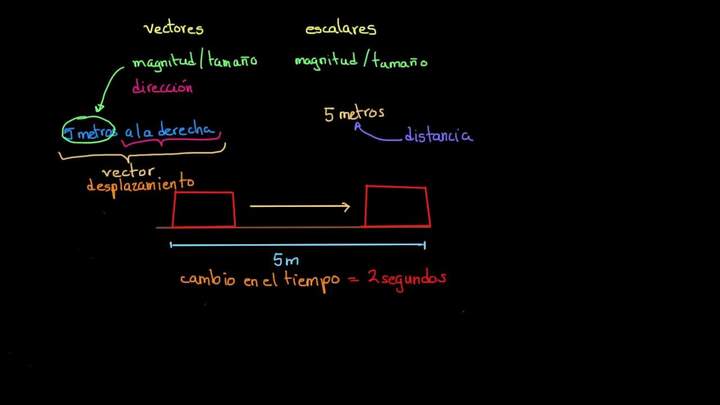 vectores
escalares
magnitud/tamaño
magnitud/tamaño
dirección
5 metros
5 metros a la derecha
distancia
vector
desplazamiento
5m
cambio en el tiempo = 2 segundos